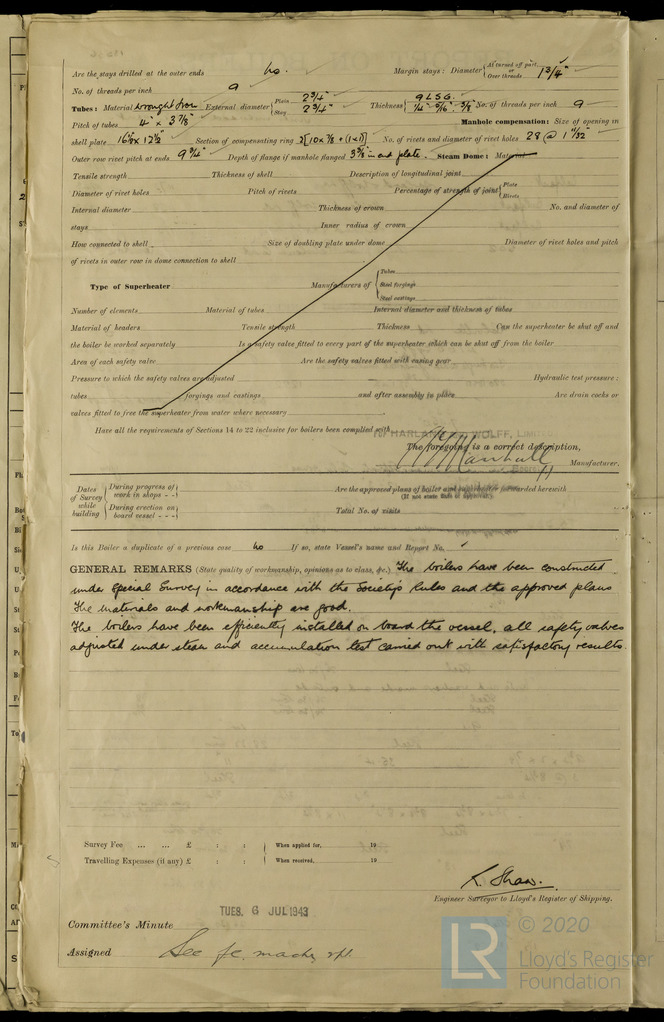 Are the stays drilled at the outer ends No. Margin stays: Diameter { At turned off part, or Over threads 1 3/4"
No. of threads per inch 9
Tubes: Material Wrought Iron External diameter { Plain 2 3/4" Stay 2 3/4" Thickness { 9 L.S.G. 1/4" 5/16" 3/8" No. of threads per inch 9
Pitch of tubes 4" x 3 7/8" Manhole compensation: Size of opening in
shell plate 16 1/2" x 12 1/2" Section of compensating ring No. of rivets and diameter of rivet holes 28 @ 1 9/32"
Outer row rivet pitch at ends 9 3/4" Depth of flange if manhole flanged in end plate. Steam Dome: Material
Tensile strength Thickness of shell Description of longitudinal joint
Diameter of rivet holes Pitch of rivets Percentage of strength of joint { Plate Rivets
Internal diameter Thickness of crown No. and diameter of
stays Inner radius of crown
How connected to shell Size of doubling plate under dome Diameter of rivet holes and pitch
of rivets in outer row in dome connection to shell
Type of Superheater Manufacturers of { Tubes Steel forgings Steel castings
Number of elements Material of tubes Internal diameter and thickness of tubes
Material of headers Tensile strength Thickness Can the superheater be shut off and
the boiler be worked separately Is a safety valve fitted to every part of the superheater which can be shut off from the boiler
Area of each safety valve Are the safety valves fitted with easing gear
Pressure to which the safety valves are adjusted Hydraulic test pressure:
tubes forgings and castings and after assembly in place Are drain cocks or
valves fitted to free the superheater from water where necessary
Have all the requirements of Sections 14 to 22 inclusive for boilers been complied with
HARLAND & WOLFF, LIMITED
The foregoing is a correct description,
Manufacturer.
Dates of Survey while building { During progress of work in shops - - } { During erection on board vessel - - - }
Are the approved plans of boiler and superheater forwarded herewith
(If not state date of approval.)
Total No. of visits
Is this Boiler a duplicate of a previous case No If so, state Vessel's name and Report No.
GENERAL REMARKS (State quality of workmanship, opinions as to class, &c.) The boilers have been constructed
under Special Survey in accordance with the Society's Rules and the approved plans
The materials and workmanship are good.
The boilers have been efficiently installed on board the vessel, all safety valves
adjusted under steam and accumulation test carried out with satisfactory results.
Survey Fee ... ... £ : : When applied for, 19
Travelling Expenses (if any) £ : : When received, 19
K. Shaw.
Engineer Surveyor to Lloyd's Register of Shipping.
TUES. 6 JUL 1943
Committee's Minute
Assigned See F.E. machy rpt.
© 2020
LR Lloyd's Register
Foundation